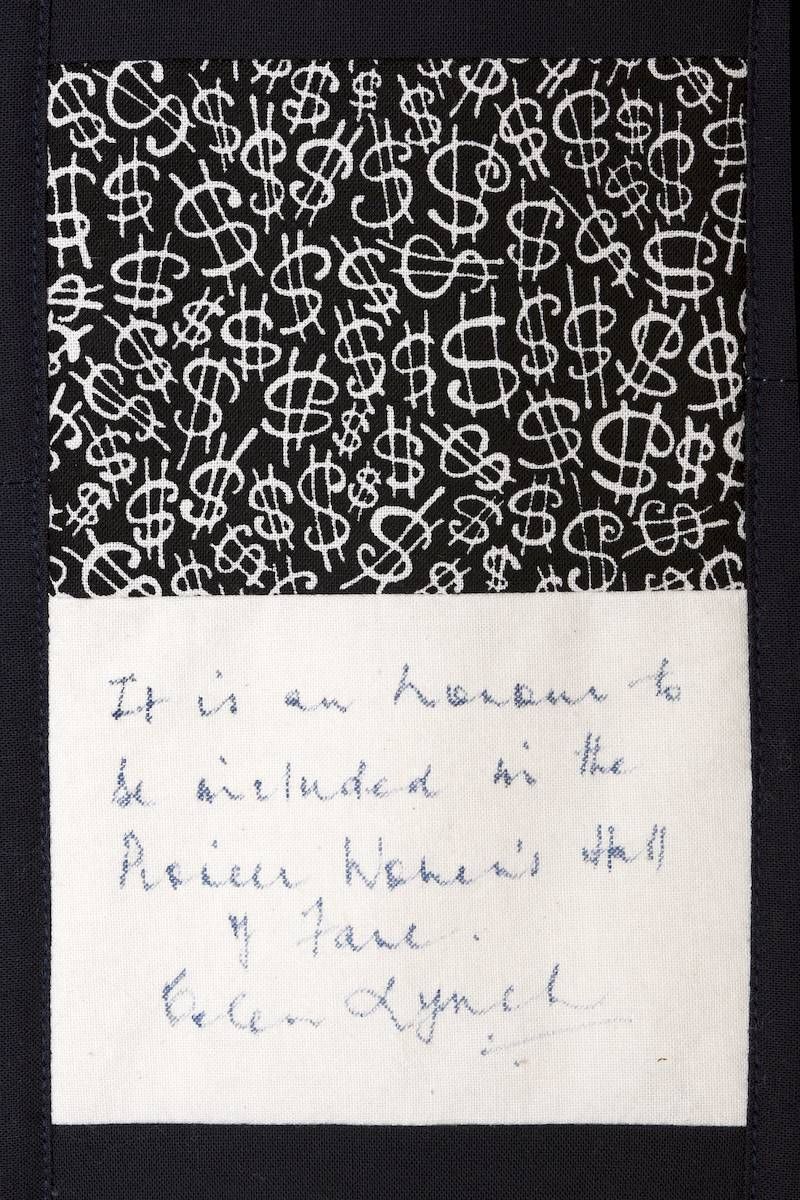 It is an honour to
be included in the
Pioneer Women's Hall
of Fame.
Helen Lynch